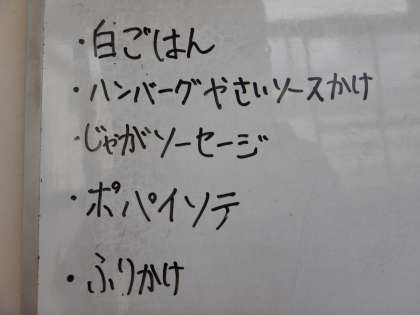 ・白ごはん
・ハンバーグやさいソースかけ
・じゃがソーセージ
・ポパイソテ
・ふりかけ